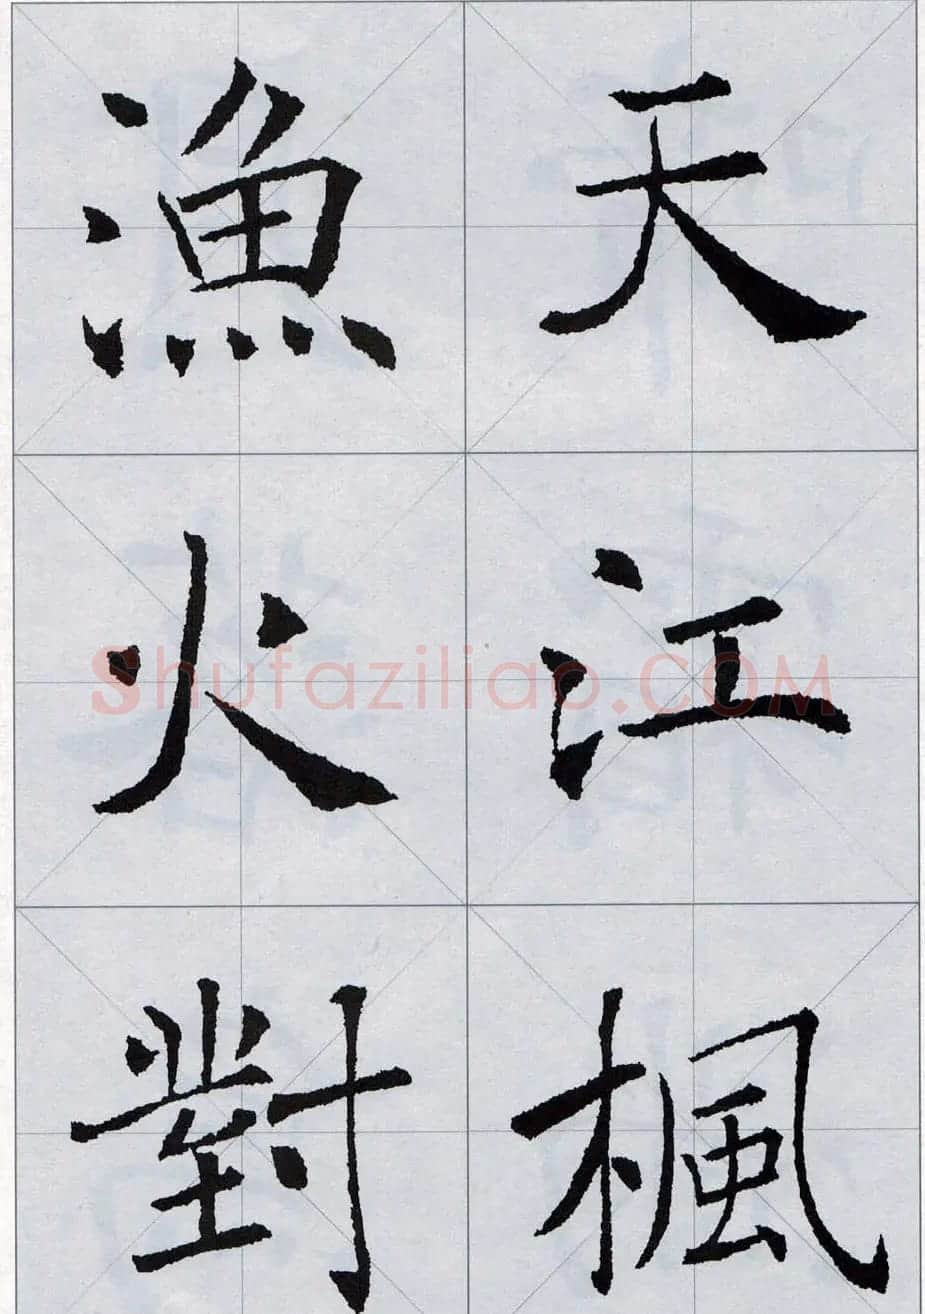 天江楓
漁火對
Shufaziliao.COM